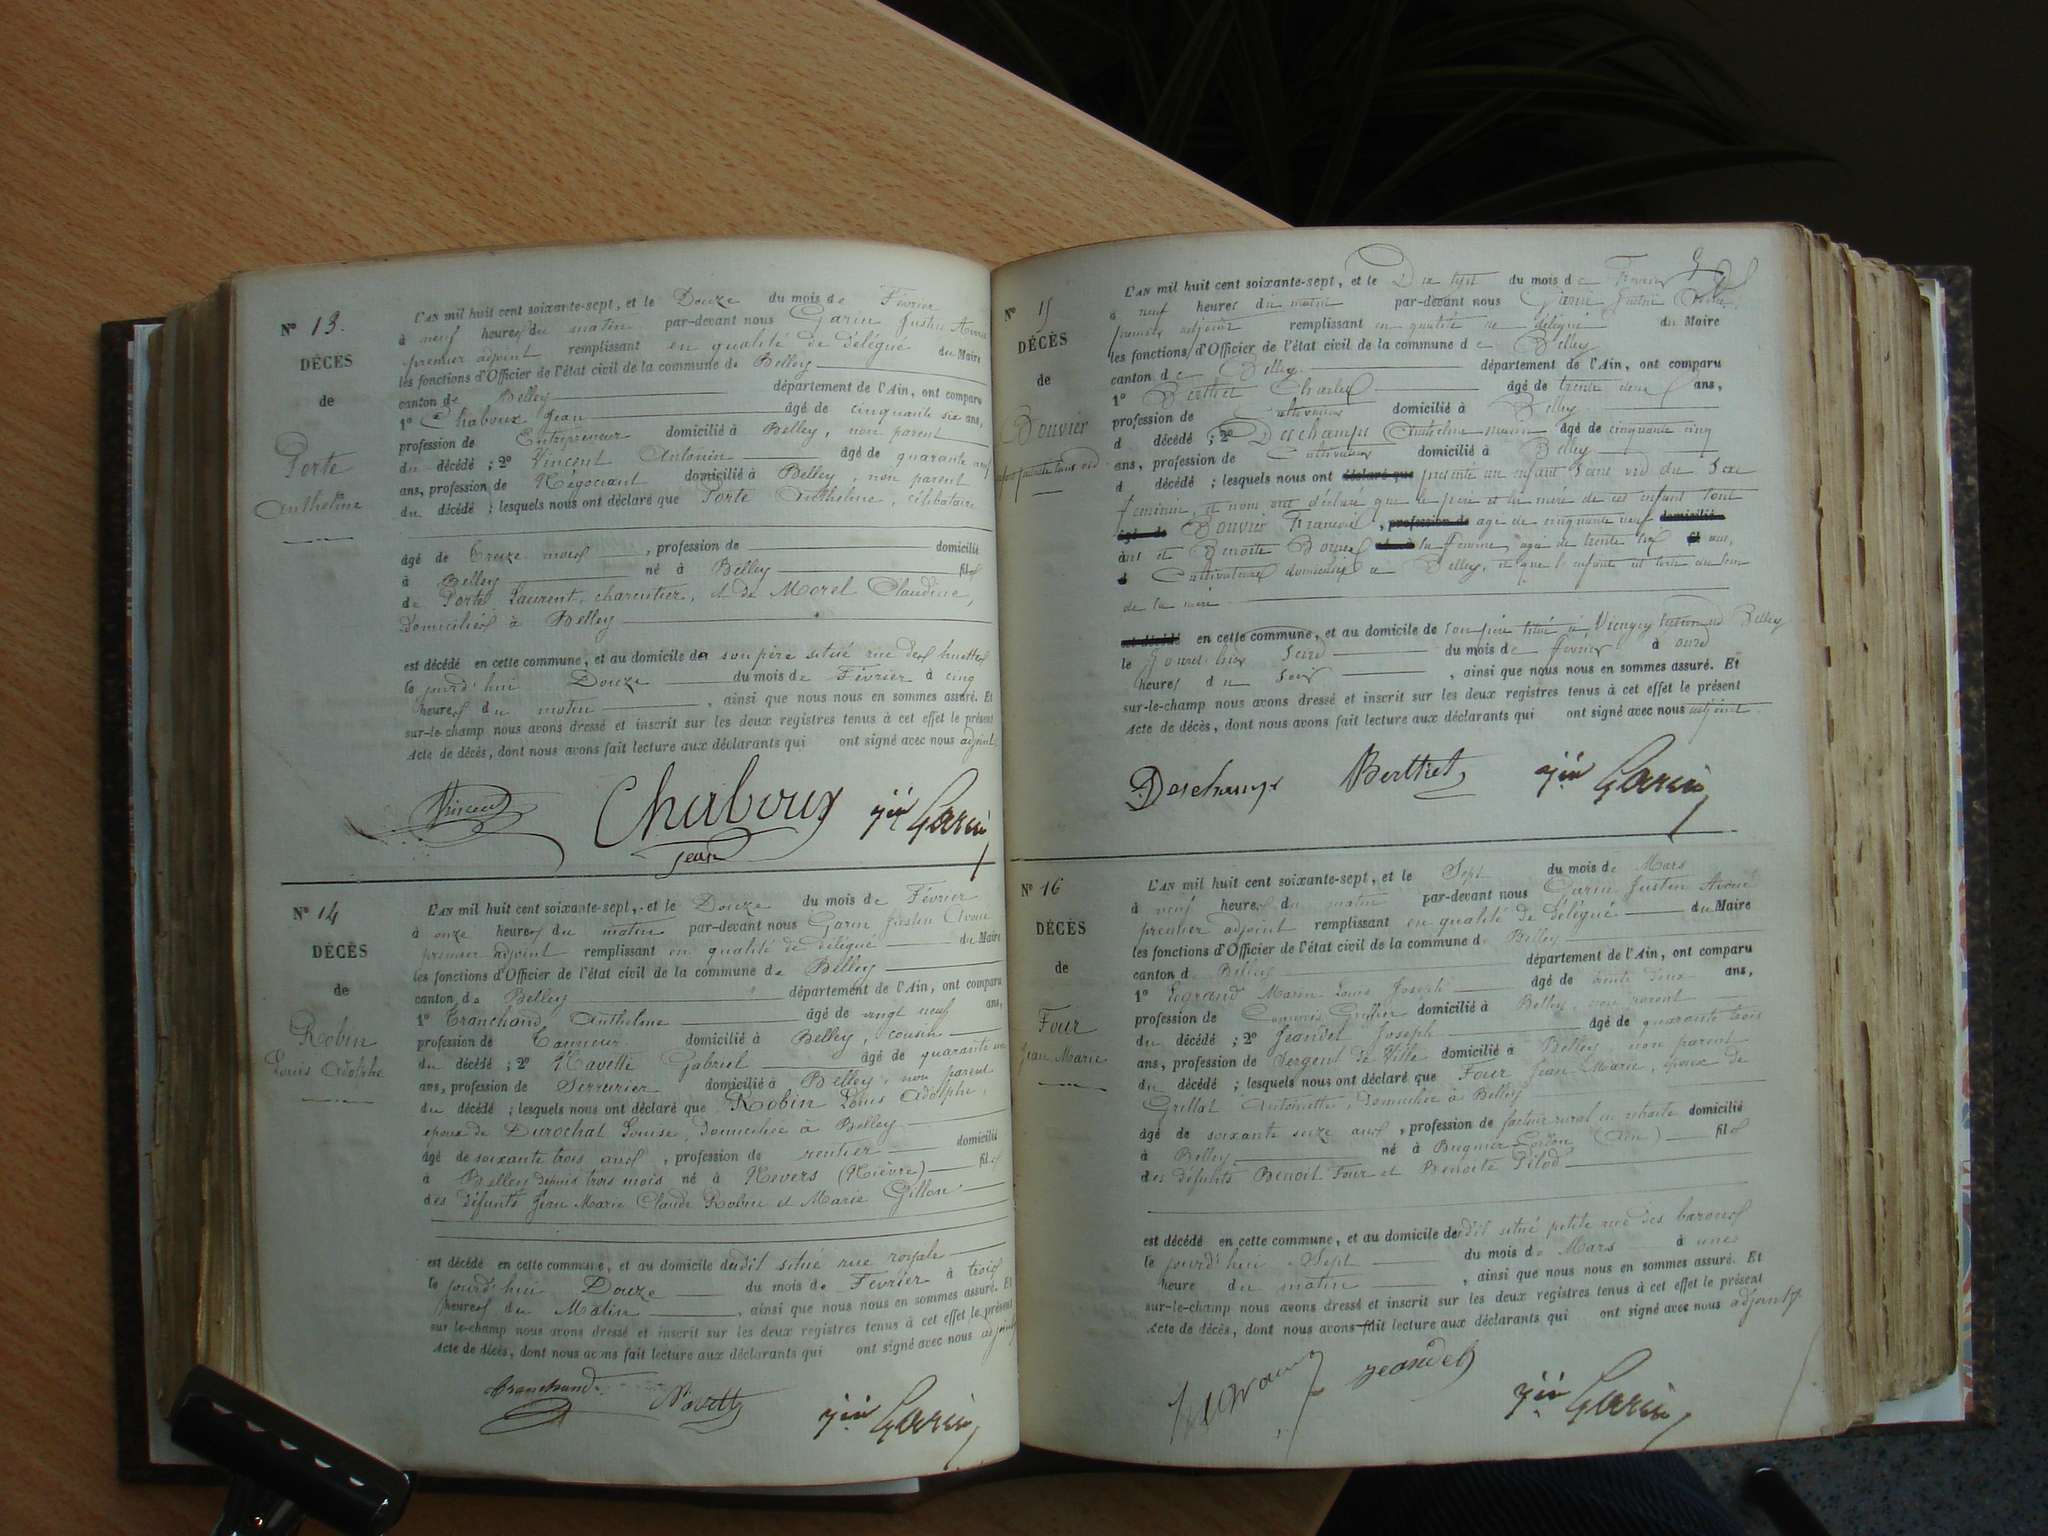 Nº 13.
DÉCÈS
de
Porte
Anthelme
L'AN mil huit cent soixante-sept, et le Douze du mois de Février
à neuf heures du matin par-devant nous Garin Justin Avoué
premier adjoint remplissant en qualité de délégué du Maire
les fonctions d'Officier de l'état civil de la commune de Belley
canton de Belley département de l'Ain, ont comparu
1º Chaboux Jean âgé de cinquante six ans,
profession de Entrepreneur domicilié à Belley, non parent
du décédé ; 2º Vincent Antonin âgé de quarante
ans, profession de Négociant domicilié à Belley, non parent
du décédé ; lesquels nous ont déclaré que Porte Anthelme, célibataire
âgé de Treize mois, profession de domicilié
à Belley né à Belley fils
de Porte Laurent, charpentier, & de Morel Claudine,
domiciliés à Belley
est décédé en cette commune, et au domicile de son père situé rue des
le jourd'hui Douze du mois de Février à cinq
heures du matin, ainsi que nous nous en sommes assuré. Et
sur-le-champ nous avons dressé et inscrit sur les deux registres tenus à cet effet le présent
Acte de décès, dont nous avons fait lecture aux déclarants qui ont signé avec nous adjoint.
Vincent Chaboux Jean Garin
Nº 14
DÉCÈS
de
Robin
Louis Adolphe
L'AN mil huit cent soixante-sept, et le Douze du mois de Février
à onze heures du matin par-devant nous Garin Justin Avoué
premier adjoint remplissant en qualité de délégué du Maire
les fonctions d'Officier de l'état civil de la commune de Belley
canton de Belley département de l'Ain, ont comparu
1º Tranchand Anthelme âgé de vingt neuf ans,
profession de Tanneur domicilié à Belley, cousin
du décédé ; 2º Navette Gabriel âgé de quarante
ans, profession de Serrurier domicilié à Belley, non parent
du décédé ; lesquels nous ont déclaré que Robin Louis Adolphe,
époux de Durochat Louise, domiciliée à Belley
âgé de soixante trois ans, profession de rentier domicilié
à Belley depuis trois mois né à Nevers (Nièvre) fils
des défunts Jean Marie Claude Robin et Marie Gillon
est décédé en cette commune, et au domicile dudit situé rue royale
le jourd'hui Douze du mois de Février à trois
heures du Matin, ainsi que nous nous en sommes assuré. Et
sur-le-champ nous avons dressé et inscrit sur les deux registres tenus à cet effet le présent
Acte de décès, dont nous avons fait lecture aux déclarants qui ont signé avec nous adjoint
Tranchand Navette Garin
Nº 15
DÉCÈS
de
Bouvier
enfant sans vie
L'AN mil huit cent soixante-sept, et le Dix sept du mois de Février
à neuf heures du matin par-devant nous Garin Justin Avoué
premier adjoint remplissant en qualité de délégué du Maire
les fonctions d'Officier de l'état civil de la commune de Belley
canton de Belley département de l'Ain, ont comparu
1º Berthet Charles âgé de trente deux ans,
profession de Cultivateur domicilié à Belley
d décédé ; 2º Deschamps Anthelme âgé de cinquante cinq
ans, profession de Cultivateur domicilié à Belley
d décédé ; lesquels nous ont déclaré que présenté un enfant sans vie du sexe
féminin, et nous ont déclaré que le père et la mère de cet enfant sont
âgé de Bouvier François, profession de agé de cinquante neuf domicilié
ans et Benoite sa femme, agée de trente six ans,
Cultivateurs domiciliés à Belley, et que l'enfant est sorti du sein
de la mère
est décédé en cette commune, et au domicile de son père situé à Belley
le jourd'hier Seize du mois de février à onze
heures du soir, ainsi que nous nous en sommes assuré. Et
sur-le-champ nous avons dressé et inscrit sur les deux registres tenus à cet effet le présent
Acte de décès, dont nous avons fait lecture aux déclarants qui ont signé avec nous adjoint.
Deschamps Berthet Garin
Nº 16
DÉCÈS
de
Four
Jean Marie
L'AN mil huit cent soixante-sept, et le Sept du mois de Mars
à neuf heures du matin par-devant nous Garin Justin Avoué
premier adjoint remplissant en qualité de délégué du Maire
les fonctions d'Officier de l'état civil de la commune de Belley
canton de Belley département de l'Ain, ont comparu
1º Legrand Marin Louis Joseph âgé de trente deux ans,
profession de Commis Greffier domicilié à Belley, non parent
du décédé ; 2º Jeandet Joseph âgé de quarante trois
ans, profession de Sergent de Ville domicilié à Belley non parent
du décédé ; lesquels nous ont déclaré que Four Jean Marie, époux de
Grillat Antoinette, domiciliée à Belley
âgé de soixante seize ans, profession de facteur rural en retraite domicilié
à Belley né à Brégnier Cordon (Ain) fils
des défunts Benoit Four et Benoite Pilod
est décédé en cette commune, et au domicile dudit situé petite rue des barons
le jourd'hui Sept du mois de Mars à une
heure du matin, ainsi que nous nous en sommes assuré. Et
sur-le-champ nous avons dressé et inscrit sur les deux registres tenus à cet effet le présent
Acte de décès, dont nous avons fait lecture aux déclarants qui ont signé avec nous adjoint.
Legrand Jeandet Garin